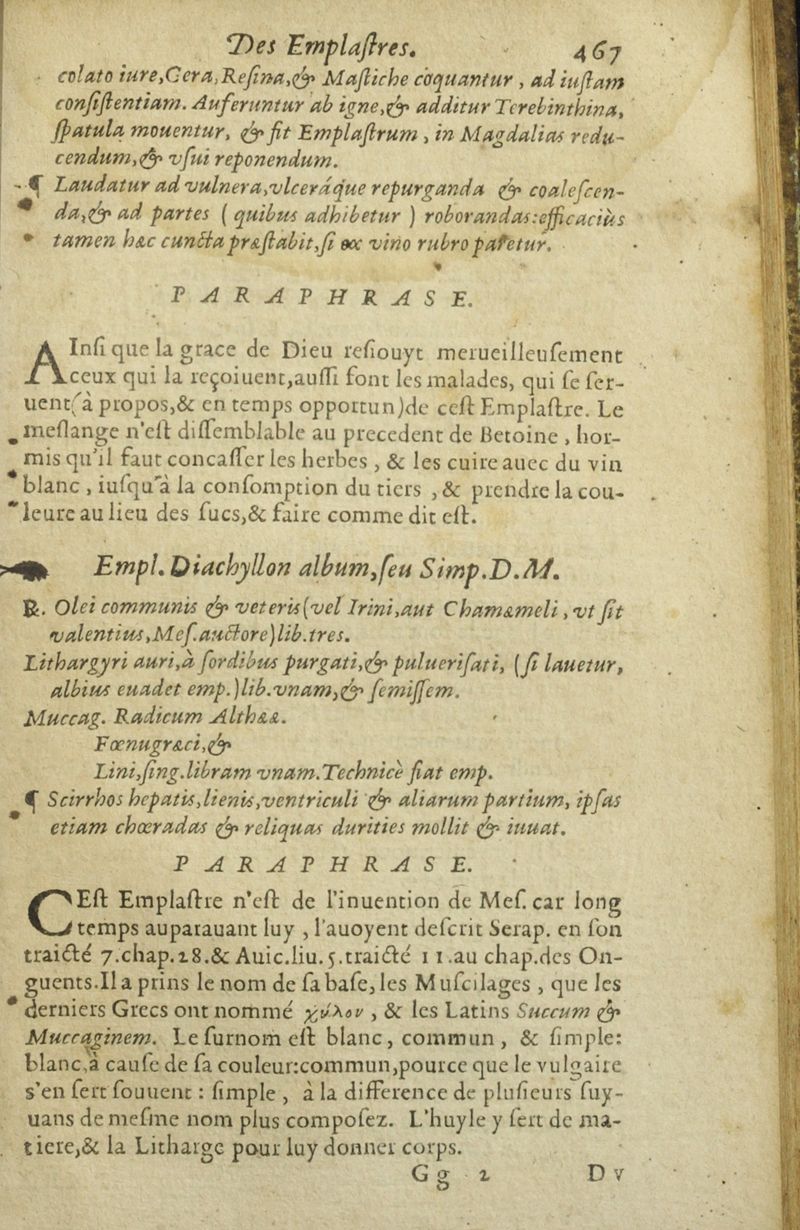 Des Emplaſtres. 467
colato iure,Cera,Reſina,& Maſtiche coquantur , ad iuſtam
conſiſtentiam. Auferuntur ab igne,& additur Terebinthina,
ſpatula mouentur, & fit Emplaſtrum , in Magdalias redu-
cendum,& vſui reponendum.
¶ Laudatur ad vulnera,vlceráque repurganda & coaleſcen-
da,& ad partes ( quibus adhibetur ) roborandas:efficaciùs
tamen hæc cuncta præſtabit,ſi ex vino rubro paretur.
PARAPHRASE.
AInſi que la grace de Dieu reſiouyt merueilleuſement
ceux qui la reçoiuent,auſſi font les malades, qui ſe ſer-
uent(à propos,& en temps opportun)de ceſt Emplaſtre. Le
meſlange n'eſt diſſemblable au precedent de Betoine , hor-
mis qu'il faut concaſſer les herbes , & les cuire auec du vin
blanc , iuſqu'à la conſomption du tiers , & prendre la cou-
leure au lieu des ſucs,& faire comme dit eſt.
Empl. Diachyllon album,ſeu Simp.D.M.
℞. Olei communis & veteris(vel Irini,aut Chamæmeli , vt ſit
valentius,Meſ.auctore)lib.tres.
Lithargyri auri,à ſordibus purgati,& pulueriſati, (ſi lauetur,
albius euadet emp.)lib.vnam,& ſemiſſem.
Muccag. Radicum Altheæ.
Fœnugræci,&
Lini,ſing.libram vnam.Technicè fiat emp.
¶ Scirrhos hepatis,lienis,ventriculi & aliarum partium, ipſas
etiam chœradas & reliquas durities mollit & iuuat.
PARAPHRASE.
CEſt Emplaſtre n'eſt de l'inuention de Meſ. car long
temps auparauant luy , l'auoyent deſcrit Serap. en ſon
traicté 7.chap.28.& Auic.liu.5.traicté 11.au chap.des On-
guents.Il a prins le nom de ſa baſe, les Muſcilages , que les
derniers Grecs ont nommé χύλον , & les Latins Succum &
Muccaginem. Le ſurnom eſt blanc, commun , & ſimple:
blanc,à cauſe de ſa couleur:commun,pource que le vulgaire
s'en ſert ſouuent : ſimple , à la difference de pluſieurs ſuy-
uans de meſme nom plus compoſez. L'huyle y ſert de ma-
tiere,& la Litharge pour luy donner corps.
Gg 2 Dv